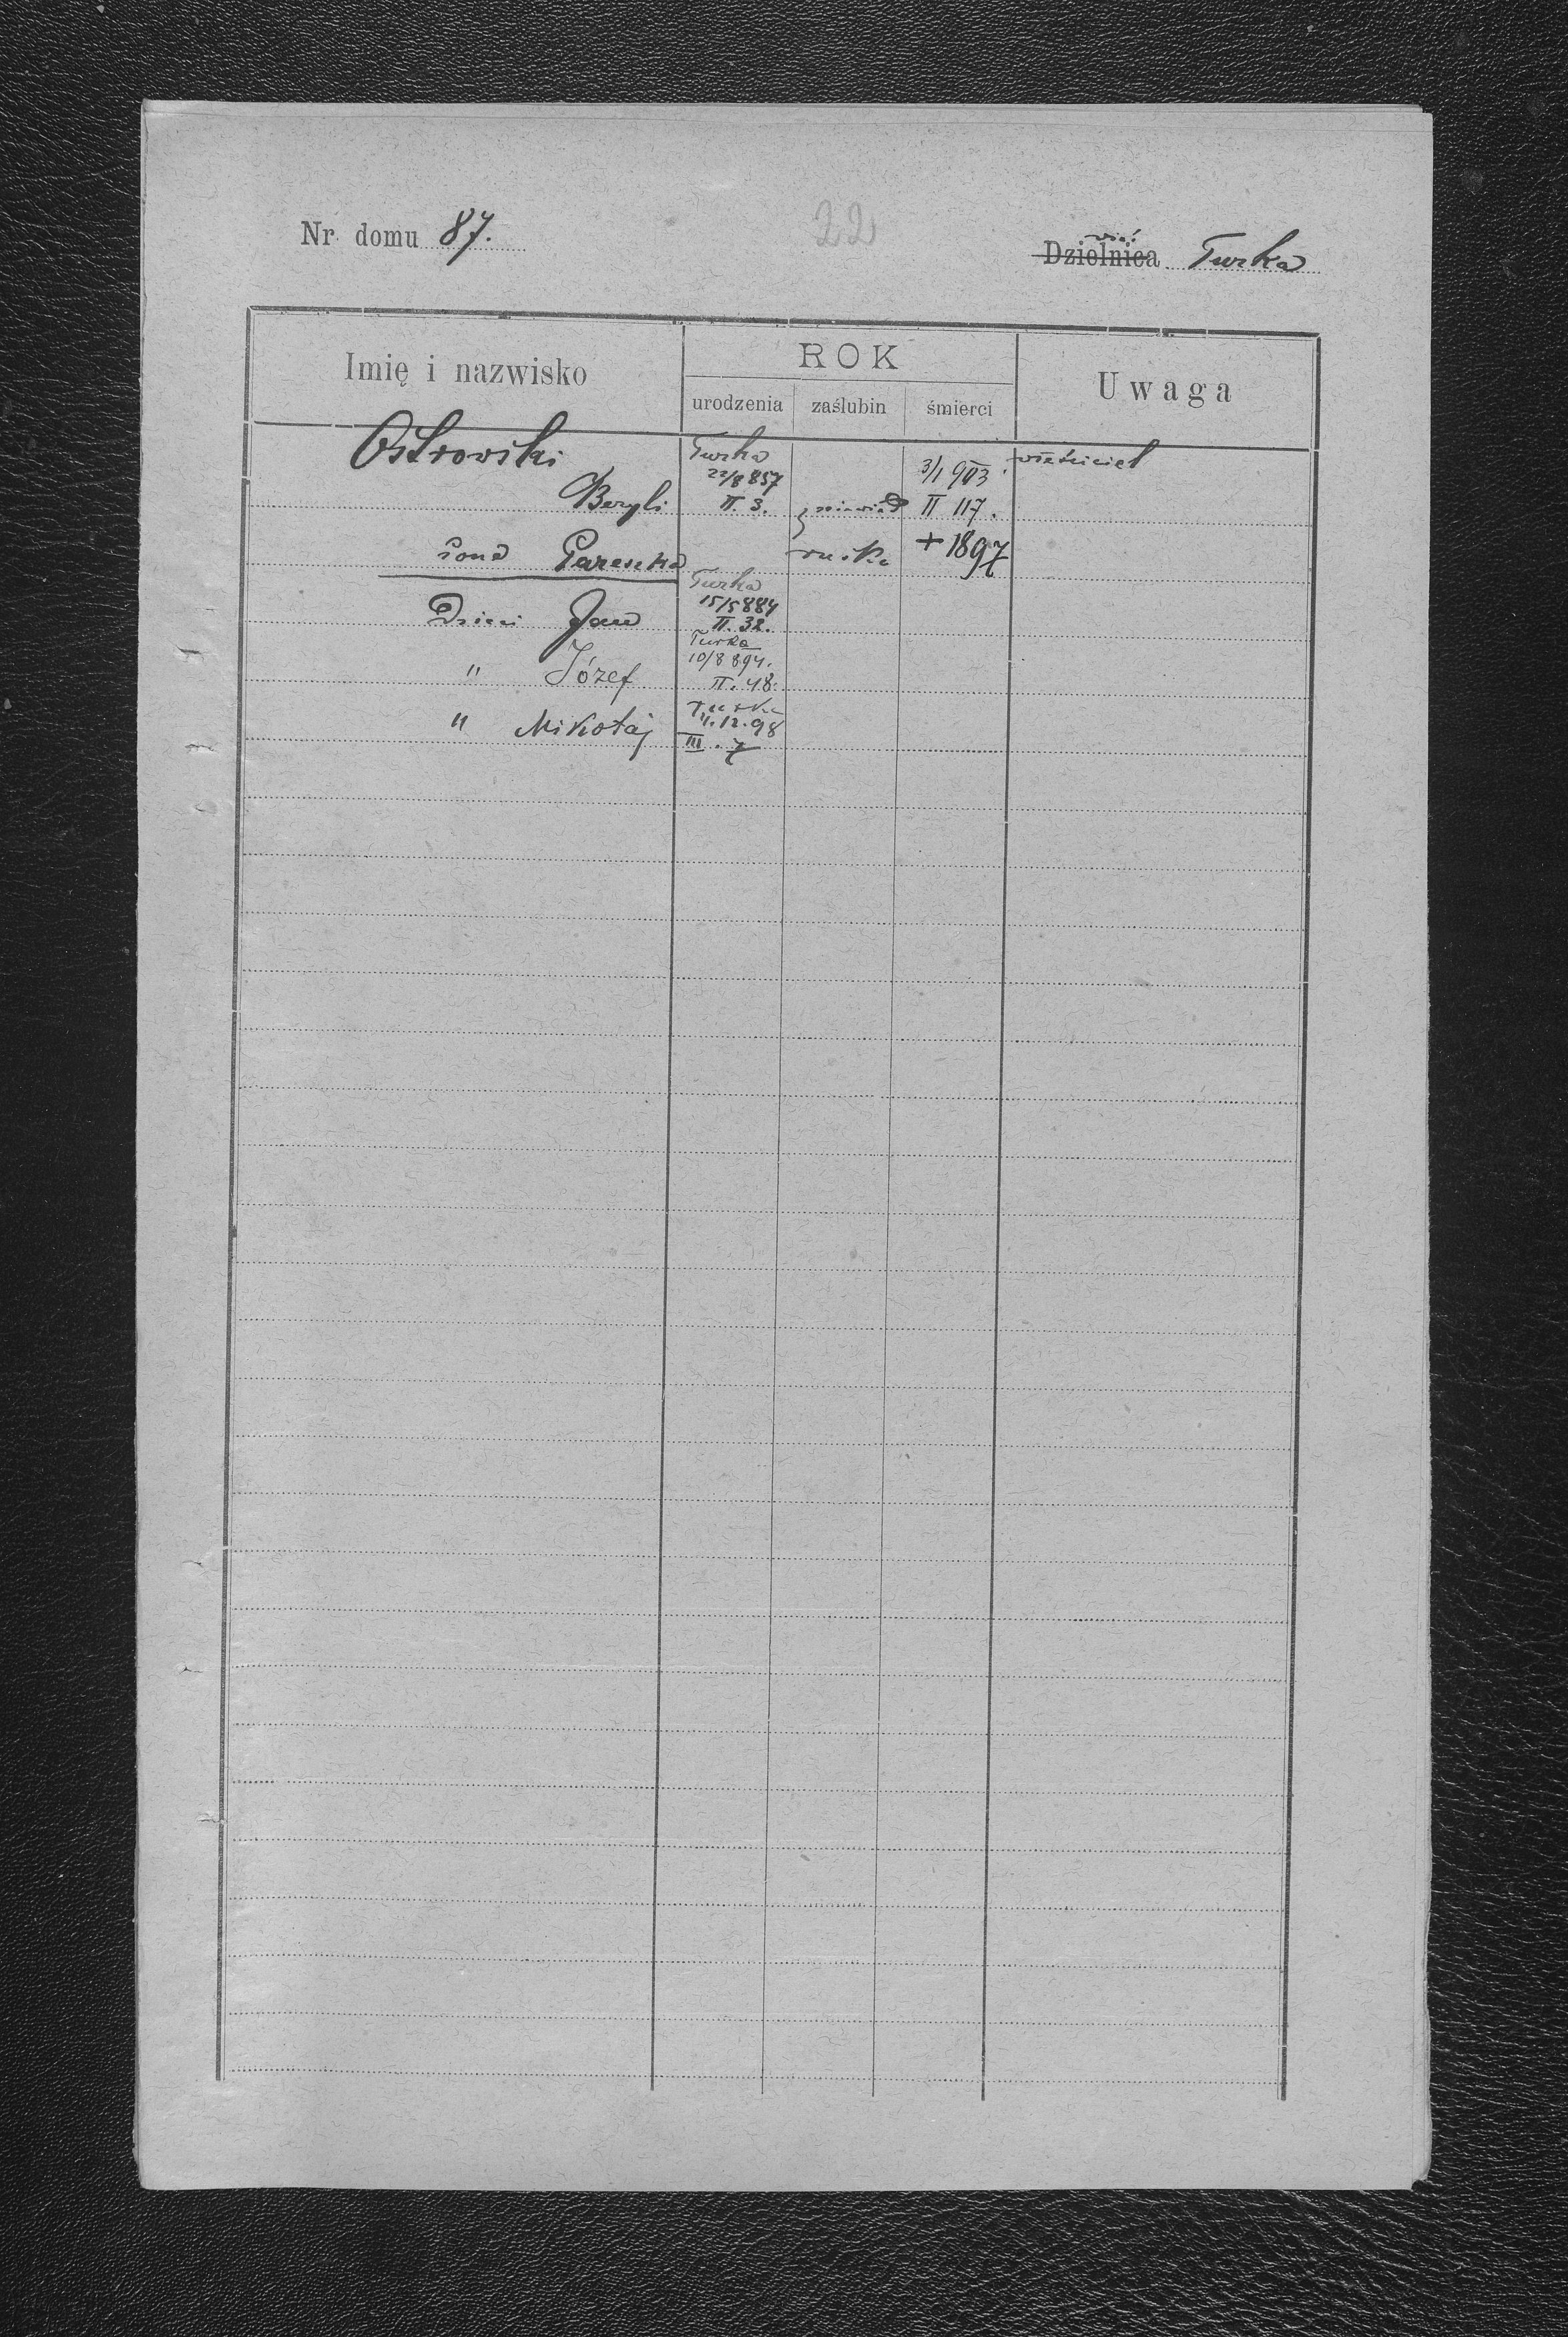 Nr. domu 87.
22
wieś
Dzielnica Turka
Imię i nazwisko
ROK
urodzenia zaślubin śmierci
Uwaga
Ostrowski Turka 3/1 903 właściciel
22/8 857
Bazyli II. 3. II 117.
żona Paraszka + 1897
Turka
15/5 884
Dzieci Jan II. 32.
Turka
10/8 894.
" Józef II. 48.
Turka
" Mikołaj 4.12.98
III. 7